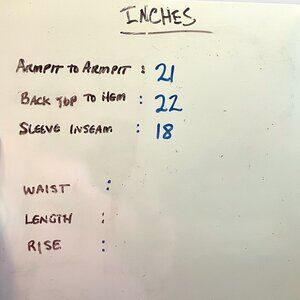 INCHES
ARMPIT TO ARMPIT : 21
BACK TOP TO HEM : 22
SLEEVE INSEAM : 18
WAIST :
LENGTH :
RISE :